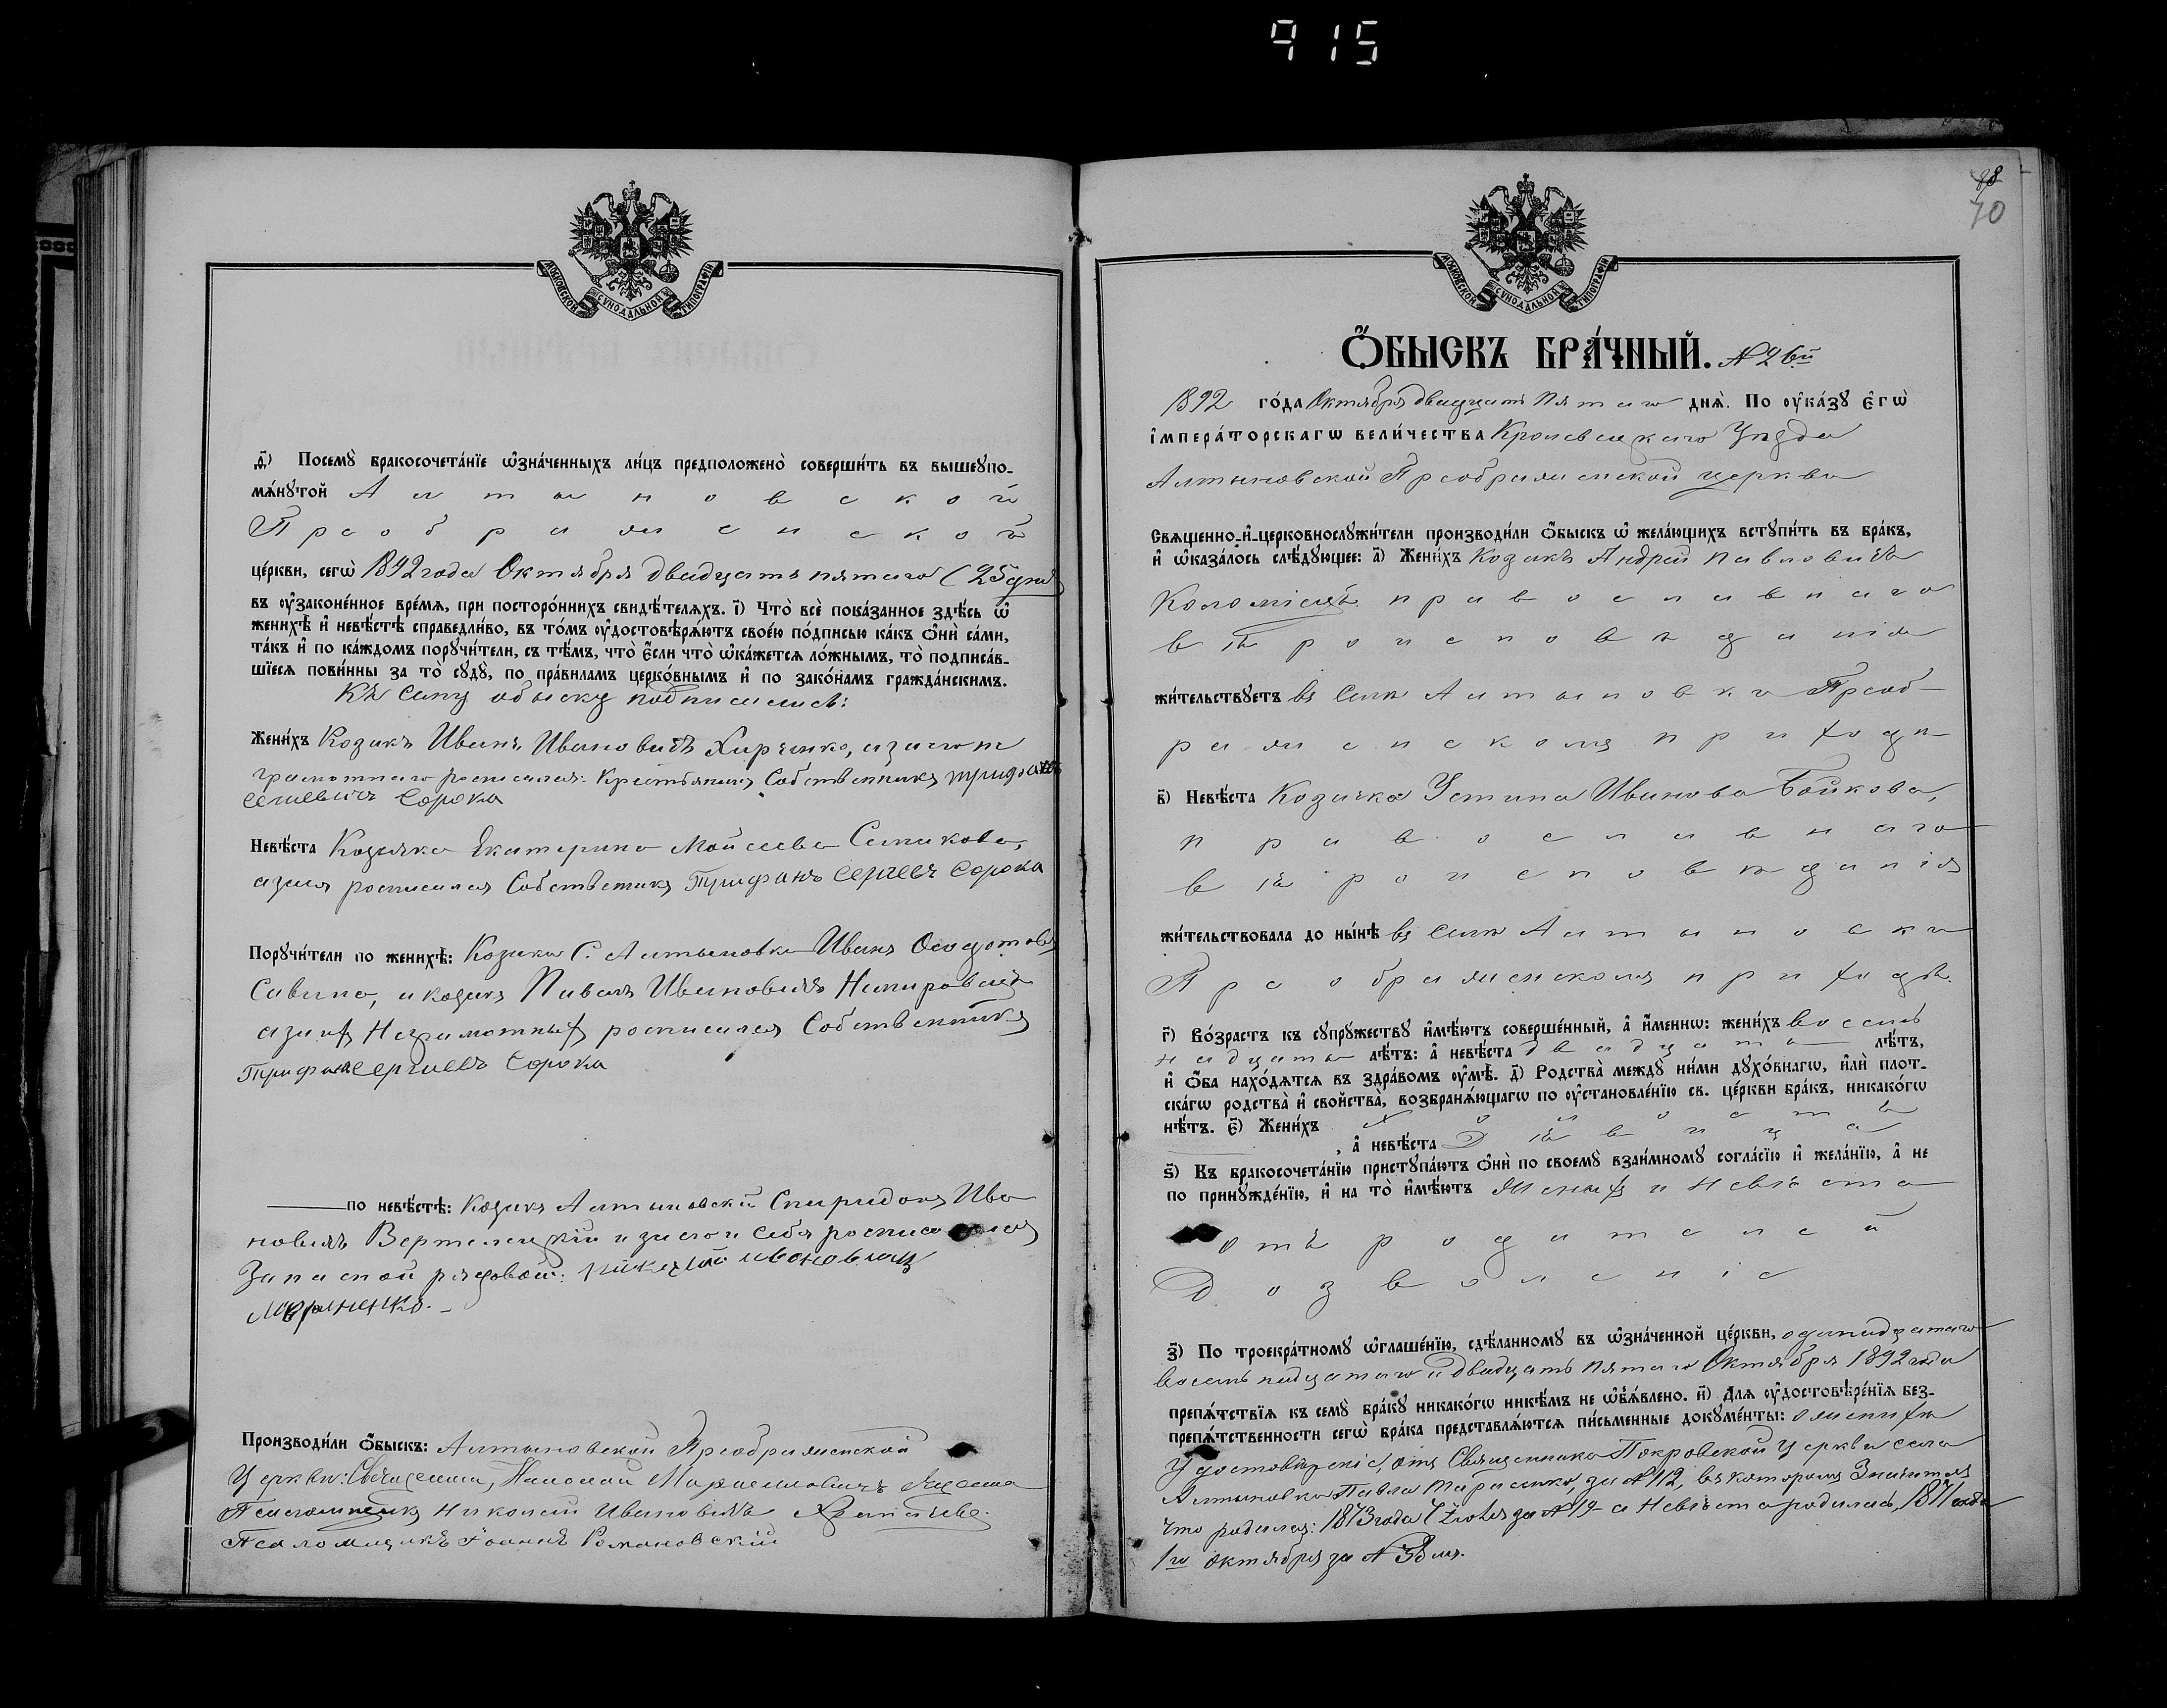 915
МОСКОВСКОЙ СѴНОДАЛЬНОЙ ТИПОГРАФІИ
д҃) Посемꙋ̀ бракосочета́нїе ѡ҆зна́ченныхъ ли́цъ предположено̀ соверши́ть въ вышеꙋпо-
мѧ́нꙋтой Алтыновской
Преображенской
це́ркви, сегѡ̀ 1892 года Октября двадцать пятаго (25 дня)
въ ᲂу҆законе́нное вре́мѧ, при посторо́ннихъ свидѣ́телѧхъ. і҃) Что̀ всѐ пока́занное здѣ́сь ѡ҆
женихѣ̀ и҆ невѣ́стѣ справедли́во, въ то́мъ ᲂу҆достовѣрѧ́ютъ свое́ю по́дписью ка́къ ѻ҆нѝ са́ми,
та́къ и҆ по ка́ждомъ порꙋчи́тели, съ тѣ́мъ, что̀ є҆́сли что̀ ѡ҆ка́жетсѧ ло́жнымъ, то̀ подписа́в-
шїесѧ пови́нны за то̀ сꙋдꙋ̀, по пра́виламъ церко́внымъ и҆ по зако́намъ гражда́нскимъ.
Къ сему обыску подписались:
Жени́хъ Козакъ Иванъ Ивановичъ Харченко, а за него не
грамотнаго росписался: Крестьянинъ Собственникъ Трифонъ
Сергѣевичъ Сорока
Невѣ́ста Козачка Екатерина Мойсеева Семикова,
а за нея росписался Собственникъ Трифанъ Сергіевъ Сорока
Порꙋчи́тели по женихѣ̀: Козаки С. Алтыновки Иванъ Ѳеодотовъ
Савина, и козакъ Павелъ Ивановичъ
а за ихъ Неграмотныхъ росписался Собственникъ
Трифанъ Сергіевъ Сорока
по невѣ́стѣ: Козакъ Алтыновскій Спиридонъ Ива
новичъ Вертелецкій и за него и себя росписался
Запасной рядовой: ивановичъ
Производи́ли ѻ҆́быскъ: Алтыновской Преображенской
Церкви: Священникъ Николай
Псаломщикъ Николай Ивановичъ
Псаломщикъ Іоаннъ Романовскій
88
70
МОСКОВСКОЙ СѴНОДАЛЬНОЙ ТИПОГРАФІИ
Ѻ҆́БЫСКЪ БРА́ЧНЫЙ. № 26й
1892 го́да Октября двадцать Пятаго днѧ̀. По ᲂу҆ка́зꙋ є҆гѡ̀
и҆мпера́торскагѡ вели́чества Кролевецкаго Уѣзда
Алтыновской Преображенской церкви
Свѧщенно-и҆-церковнослꙋжи́тели производи́ли ѻ҆́быскъ ѡ҆ жела́ющихъ встꙋпи́ть въ бра́къ,
и҆ ѡ҆каза́лось слѣ́дꙋющее: а҃) Жени́хъ Козакъ Андрей Павловичъ
Коломіецъ православнаго
вѣроисповѣданія
жи́тельствꙋетъ въ селѣ Алтыновки Преоб-
раженскомъ приходѣ
в҃) Невѣ́ста Козачка Устина Иванова Бойкова,
православнаго
вѣроисповѣданія
жи́тельствовала до ны́нѣ въ селѣ Алтыновки
Преображенскомъ приходѣ.
г҃) Во́зрастъ къ сꙋпрꙋ́жествꙋ и҆мѣ́ютъ соверше́нный, а҆ и҆́меннѡ: жени́хъ восем
надцать лѣ́тъ: а҆ невѣ́ста двадцать лѣ́тъ,
и҆ ѻ҆́ба нахо́дѧтсѧ въ здра́вомъ ᲂу҆мѣ̀. д҃) Родства̀ междꙋ̀ ни́ми дꙋхо́внагѡ, и҆лѝ плот-
ска́гѡ родства̀ и҆ сво́йства, возбранѧ́ющагѡ по ᲂу҆становле́нїю св. це́ркви бра́къ, никако́гѡ
нѣ́тъ. є҃) Жени́хъ Холостъ
, а҆ невѣ́ста Дѣвица
ѕ҃) Къ бракосочета́нїю пристꙋпа́ютъ ѻ҆нѝ по своемꙋ̀ взаи́мномꙋ согла́сїю и҆ жела́нїю, а҆ не
по принꙋжде́нїю, и҆ на то̀ и҆мѣ́ютъ Женихъ и Невѣста
отъ родителей
Дозволеніе
з҃) По троекра́тномꙋ ѡ҆глаше́нїю, сдѣ́ланномꙋ въ ѡ҆зна́ченной це́ркви, одинадцатаго
восемнадцатаго и двадцать пятаго Октября 1892 года
препѧ́тствїѧ къ семꙋ̀ бра́кꙋ никако́гѡ никѣ́мъ не ѡ҆б̾ѧ́влено. и҃) Длѧ ᲂу҆достовѣре́нїѧ без-
препѧ́тственности сегѡ̀ бра́ка представлѧ́ютсѧ пи́сьменные докꙋме́нты: о женихѣ
Удостовѣреніе, отъ Священника Покровской Церкви села
Алтыновки Павла Тарасенко, за № 112, въ которомъ Значится
что родился: 1873 года 7 Іюля за № 19 а Невѣста родилась, 1871 года
1го октября за № 38мъ.